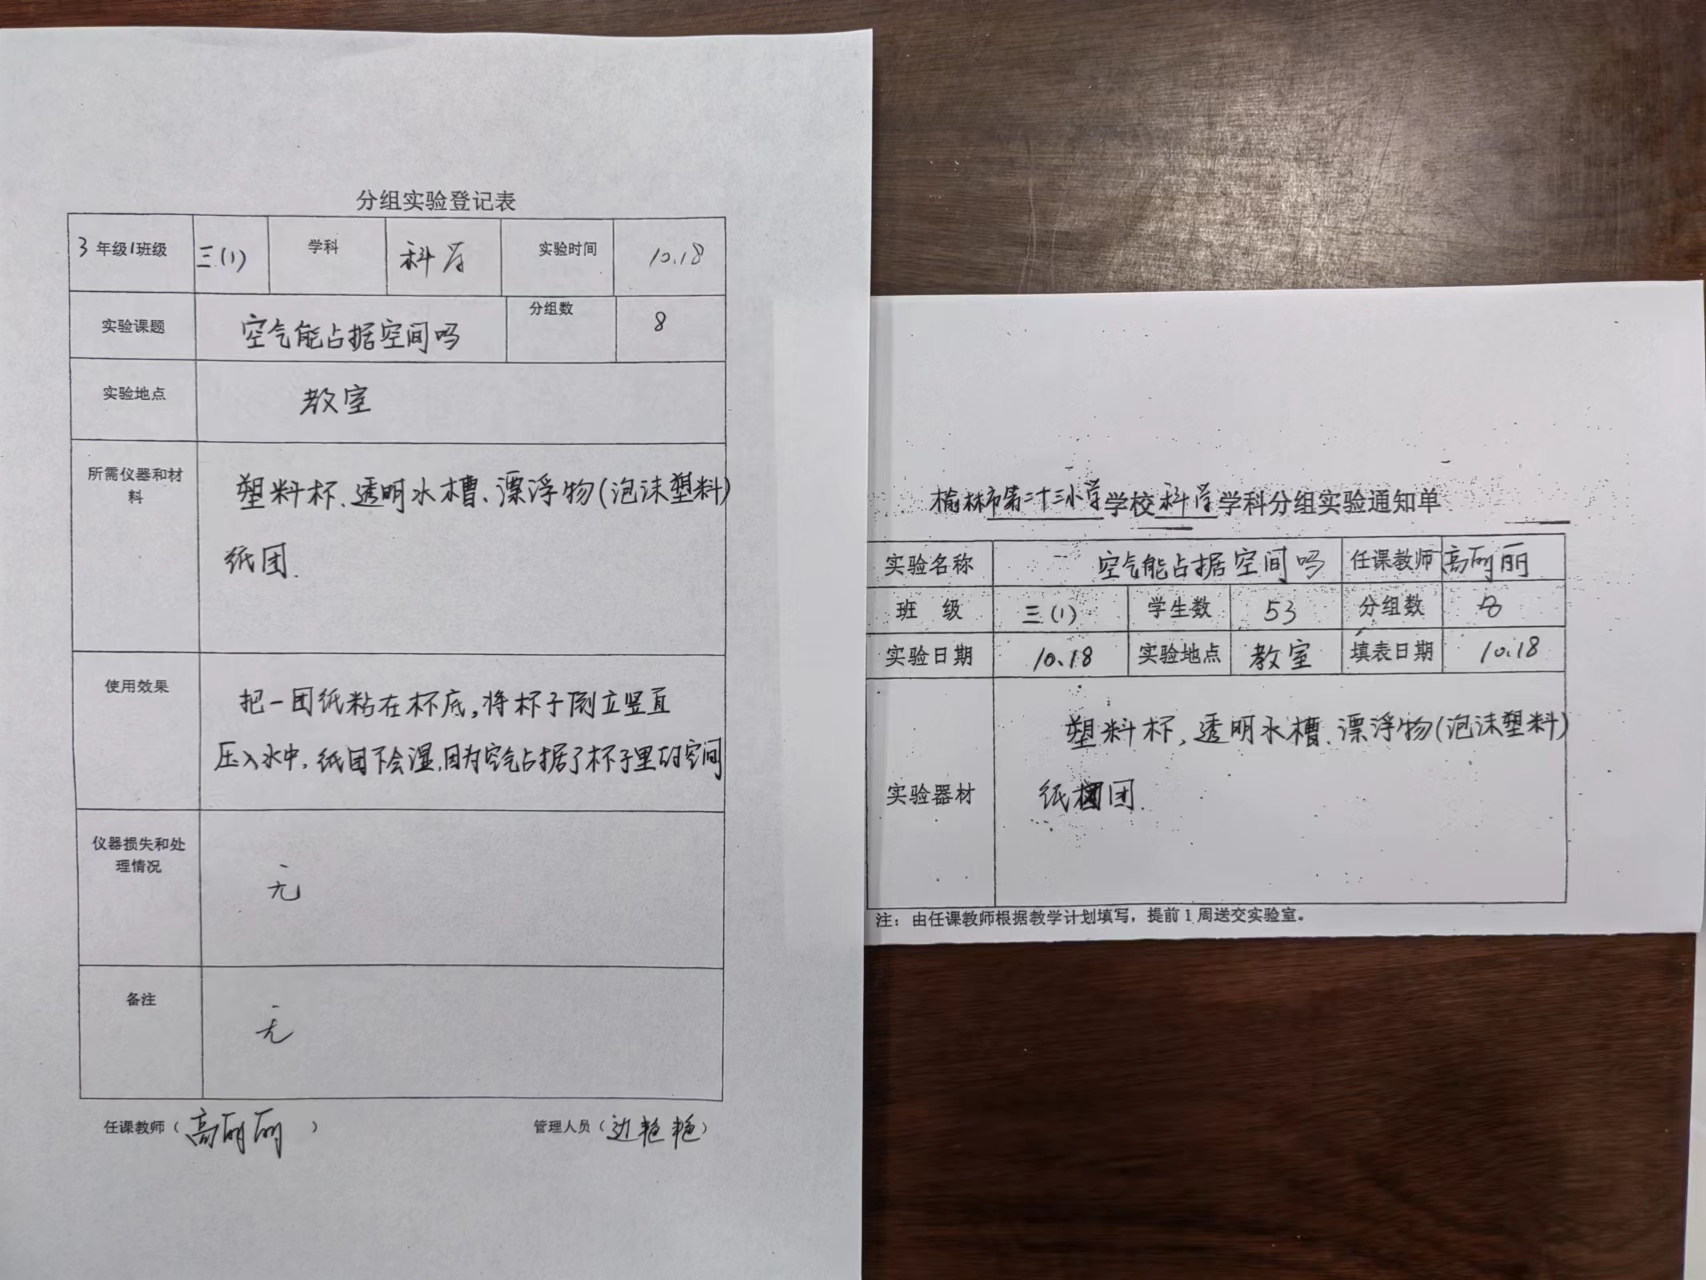 分组实验登记表
3 年级1班级 三(1) 学科 科学 实验时间 10.18
实验课题 空气能占据空间吗 分组数 8
实验地点 教室
所需仪器和材料 塑料杯、透明水槽、漂浮物(泡沫塑料)
纸团.
使用效果 把一团纸粘在杯底,将杯子倒立竖直
压入水中,纸团不会湿,因为空气占据了杯子里的空间
仪器损失和处理情况 无
备注 无
任课教师(高丽丽) 管理人员(边艳艳)
榆林市第二十三小学学校科学学科分组实验通知单
实验名称 空气能占据空间吗 任课教师 高丽丽
班 级 三(1) 学生数 53 分组数 8
实验日期 10.18 实验地点 教室 填表日期 10.18
实验器材 塑料杯,透明水槽、漂浮物(泡沫塑料)
纸团.
注:由任课教师根据教学计划填写,提前1周送交实验室。